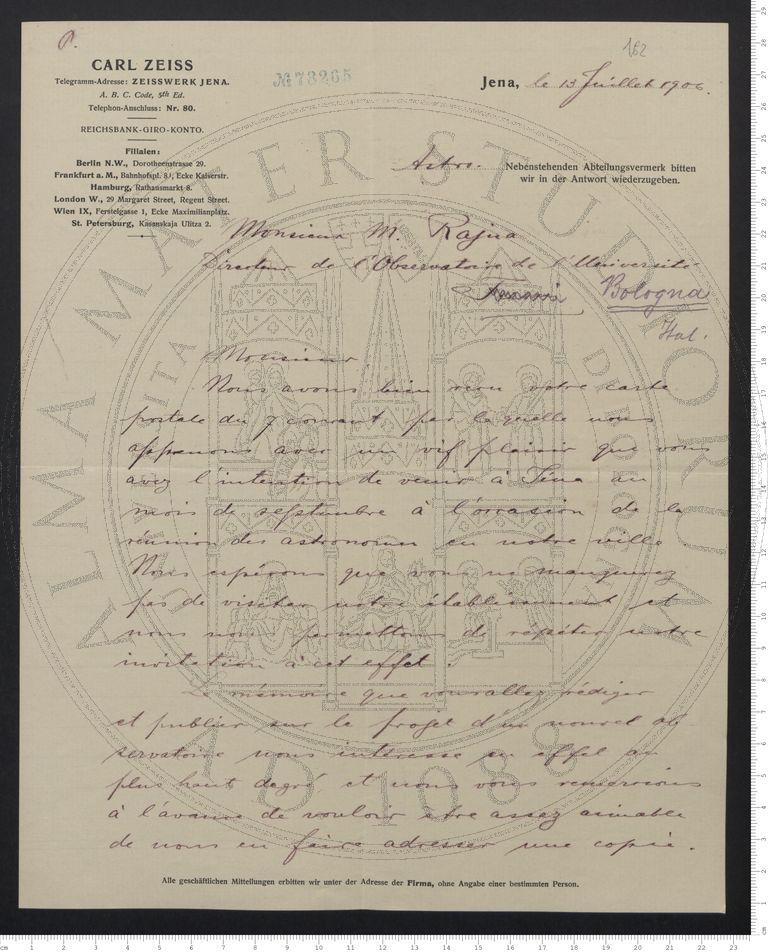 P.
162
CARL ZEISS
Telegramm-Adresse: ZEISSWERK JENA.
A. B. C. Code, 5th Ed.
Telephon-Anschluss: Nr. 80.
REICHSBANK-GIRO-KONTO.
Filialen:
Berlin N.W., Dorotheenstrasse 29.
Frankfurt a. M., Bahnhofspl. 8I, Ecke Kaiserstr.
Hamburg, Rathausmarkt 8.
London W., 29 Margaret Street, Regent Street.
Wien IX, Ferstelgasse 1, Ecke Maximilianplatz.
St. Petersburg, Kasanskaja Ulitza 2.
№ 73265
Jena, le 13 Juillet 1906.
Astro. Nebenstehenden Abteilungsvermerk bitten
wir in der Antwort wiederzugeben.
Monsieur M. Rajna
Directeur de l'Observatoire de l'Université
Bologna
Ital.
Monsieur
Nous avons bien reçu votre carte
postale du 7 courant par laquelle nous
apprenons avec un vif plaisir que vous
avez l'intention de venir à Jena au
mois de septembre à l'occasion de la
réunion des astronomes en notre ville.
Nous espérons que vous ne manquerez
pas de visiter notre établissement et
nous nous permettons de répéter notre
invitation à cet effet.
Le mémoire que vous allez rédiger
et publier sur le projet d'un nouvel ob
servatoire nous intéresse en effet au
plus haut degré et nous vous remercions
à l'avance de vouloir être assez aimable
de nous en faire adresser une copie.
Alle geschäftlichen Mitteilungen erbitten wir unter der Adresse der Firma, ohne Angabe einer bestimmten Person.
ALMA MATER STUDIORUM
A.D. 1088